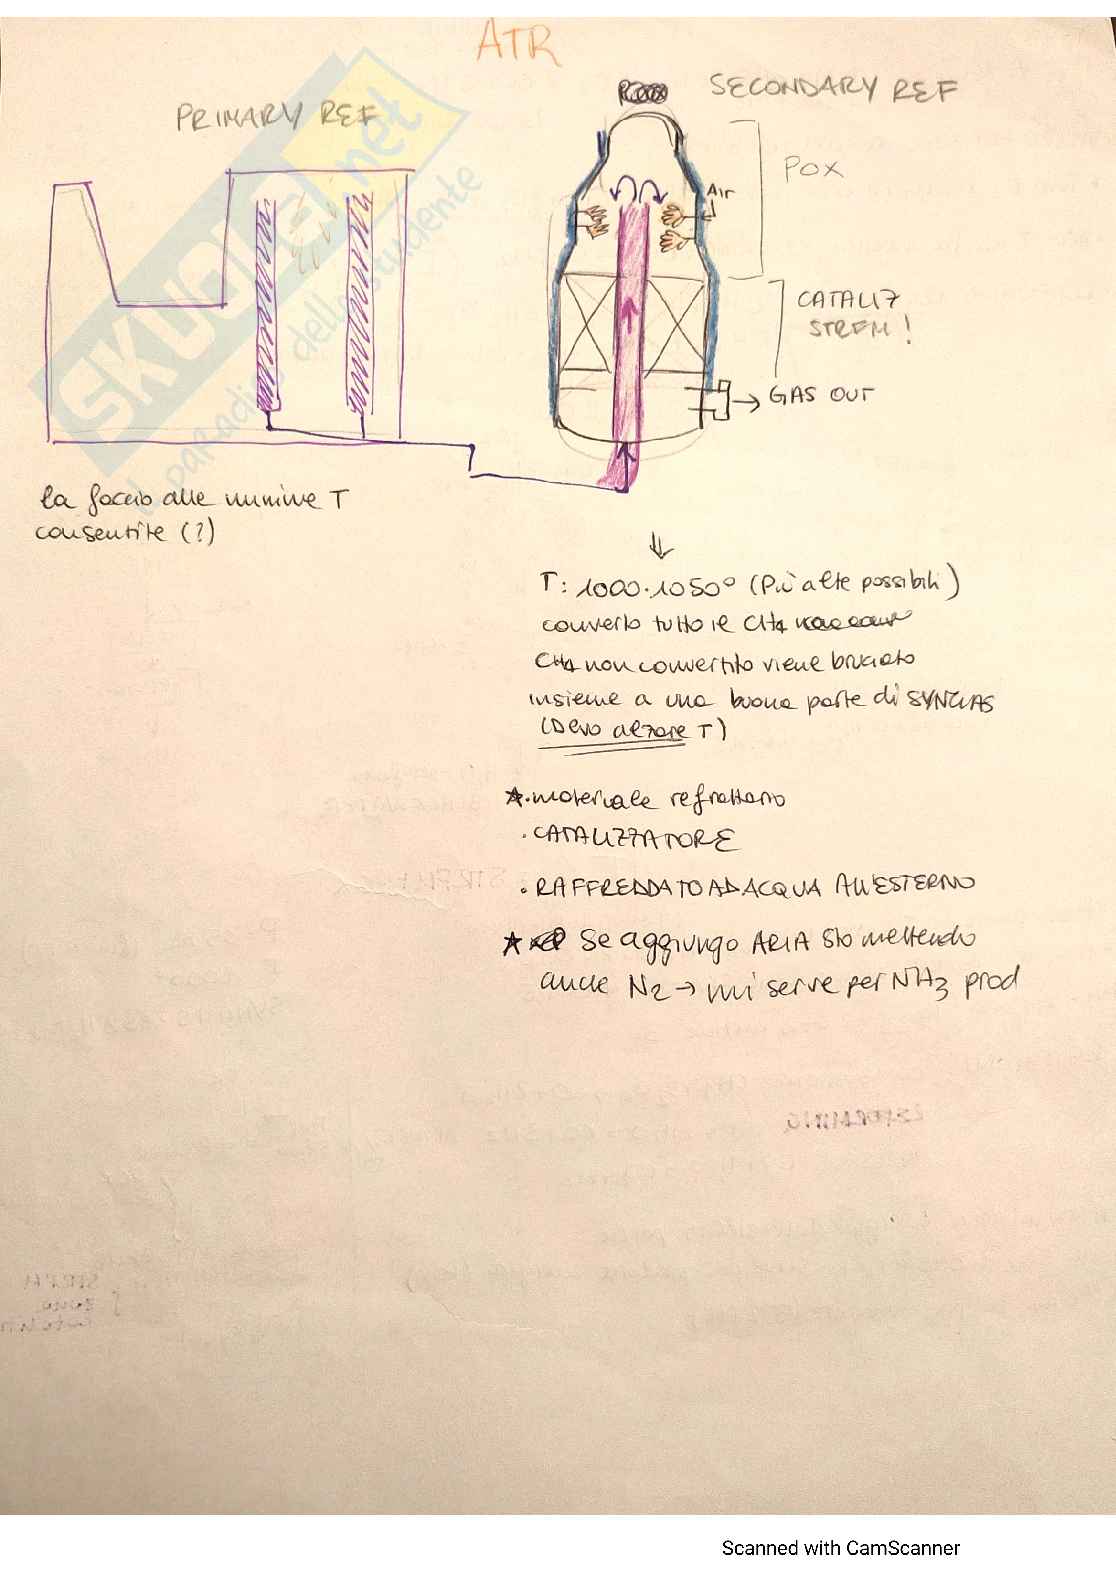 ATR
PRIMARY REF
SECONDARY REF
Air
POX
CATALIZ
STREM!
GAS OUT
la faccio alle minime T
consentite (?)
T: 1000-1050° (Più alte possibili)
converto tutto il CH4
CH4 non convertito viene bruciato
insieme a una buona parte di SYNGAS
(Devo alzare T)
★.materiale refrattario
.CATALIZZATORE
.RAFFREDDATO AD ACQUA ALL'ESTERNO
★ Se aggiungo ARIA sto mettendo
anche N2 → mi serve per NH3 prod
SKUOLA.net
il paradiso dello studente
Scanned with CamScanner